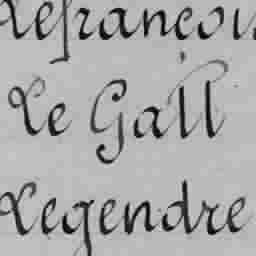 Lefrançois
Le Gall
Legendre